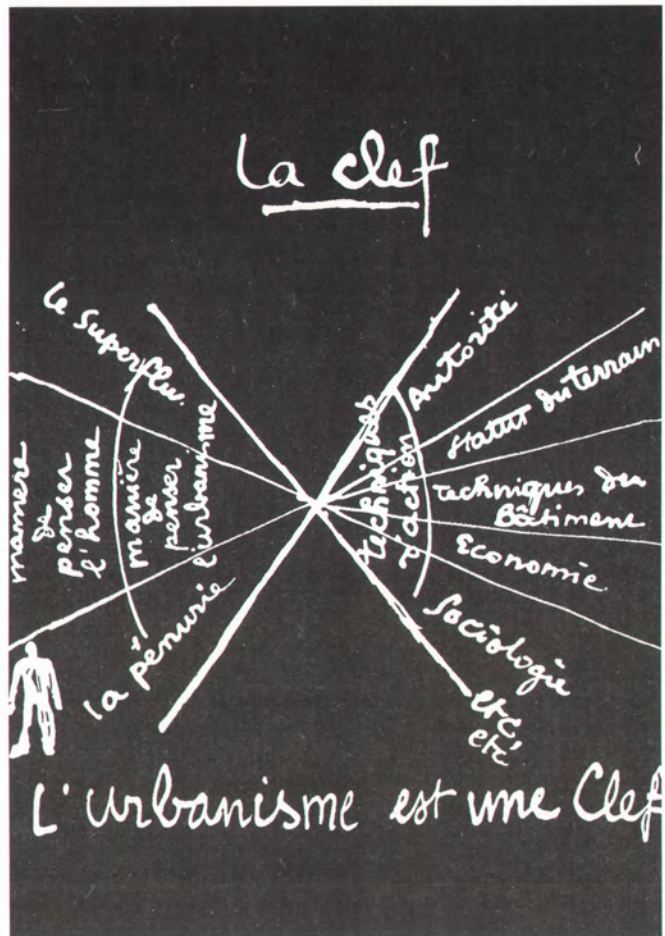 La clef
le Superflu.
manière
de
penser
l'homme
manière
de
penser
l'urbanisme
la pénurie
techniques
d'action
Autorité
Statut du terrain
techniques du
Bâtiment
Economie
Sociologie
etc,
etc
L'urbanisme est une Clef